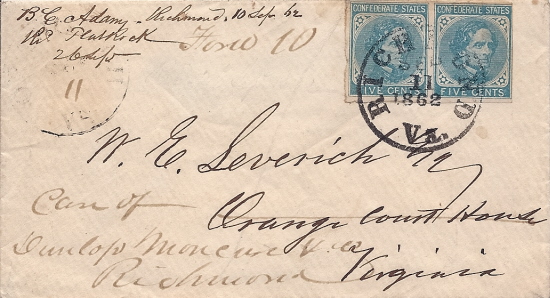 B. C. Adams, Richmond, 10 Sep. 62
26 Sep
Ford 10
CONFEDERATE STATES
FIVE CENTS
CONFEDERATE STATES
FIVE CENTS
RICHMOND
11
1862
Va.
11
W. E. Leverich Esq
Orange Court House
Virginia
Care of
Dunlop Moncure & Co
Richmond